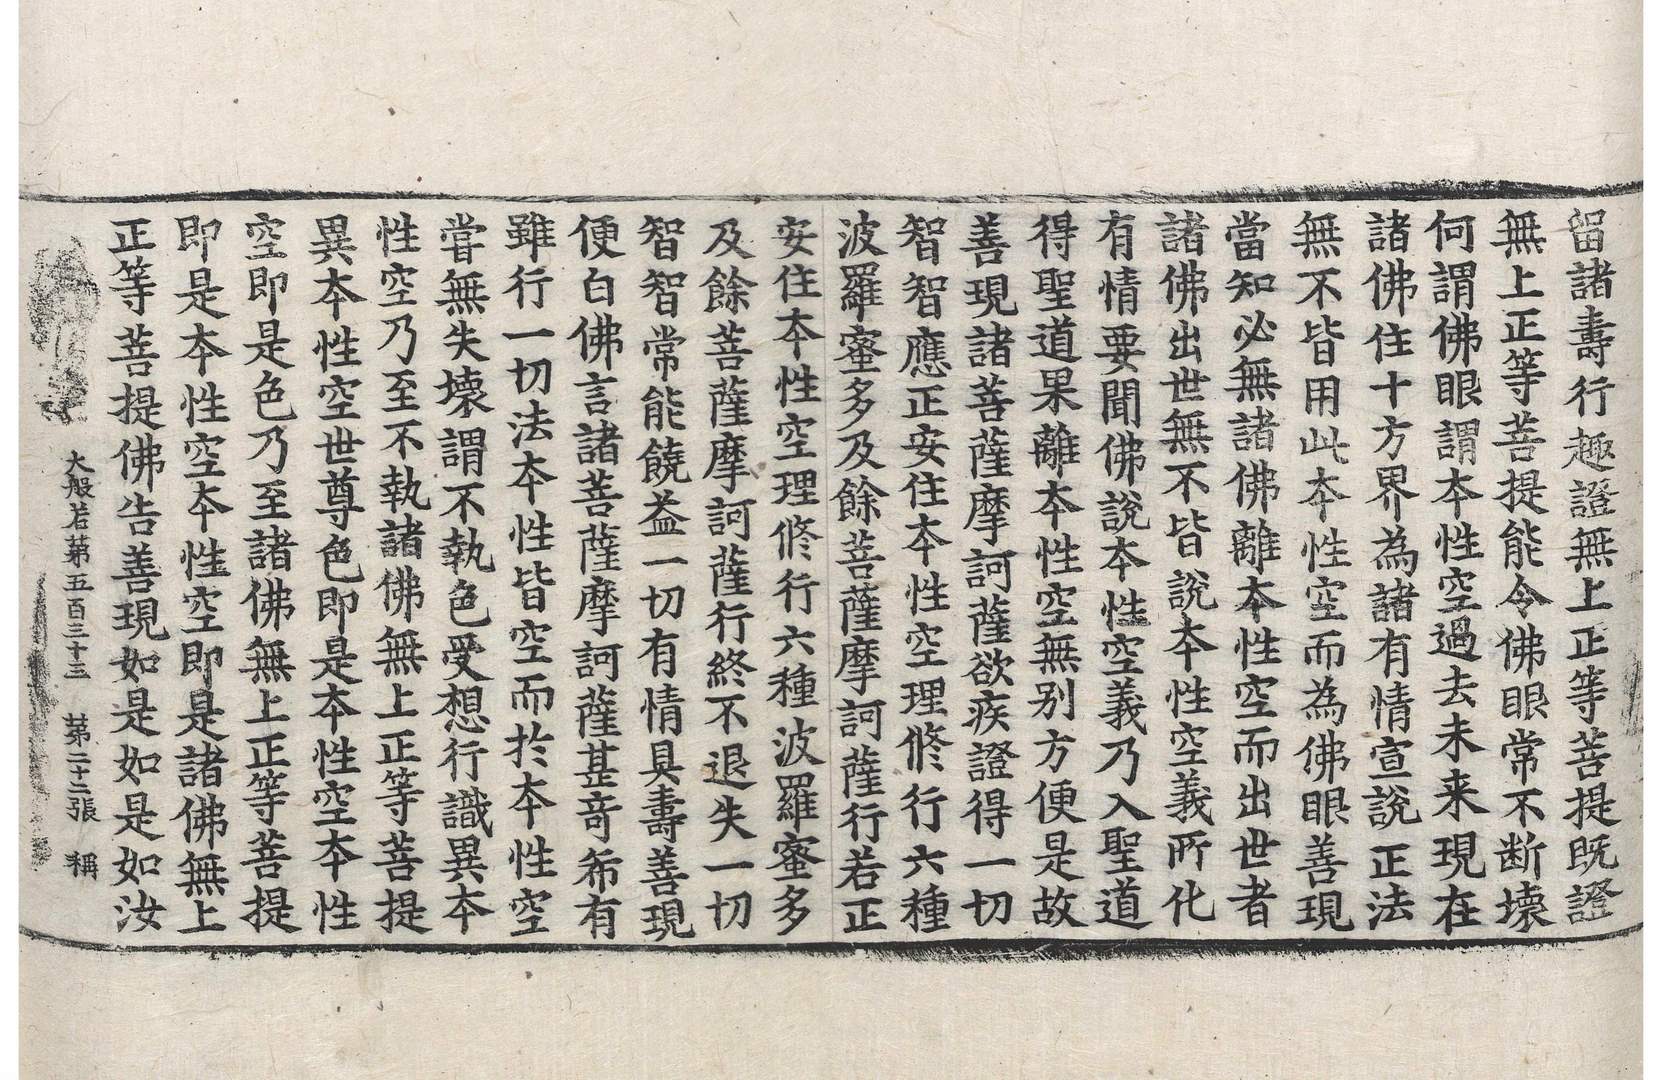 留諸壽行趣證無上正等菩提既證
無上正等菩提能令佛眼常不断壞
何謂佛眼謂本性空過去未来現在
諸佛住十方界為諸有情宣說正法
無不皆用此本性空而為佛眼善現
當知必無諸佛離本性空而出世者
諸佛出世無不皆說本性空義所化
有情要聞佛說本性空義乃入聖道
得聖道果離本性空無别方便是故
善現諸菩薩摩訶薩欲疾證得一切
智智應正安住本性空理修行六種
波羅蜜多及餘菩薩摩訶薩行若正
安住本性空理修行六種波羅蜜多
及餘菩薩摩訶薩行終不退失一切
智智常能饒益一切有情具壽善現
便白佛言諸菩薩摩訶薩甚奇希有
雖行一切法本性皆空而於本性空
嘗無失壞謂不執色受想行識異本
性空乃至不執諸佛無上正等菩提
異本性空世尊色即是本性空本性
空即是色乃至諸佛無上正等菩提
即是本性空本性空即是諸佛無上
正等菩提佛告善現如是如是如汝
大般若第五百三十三 第二十二張 稱